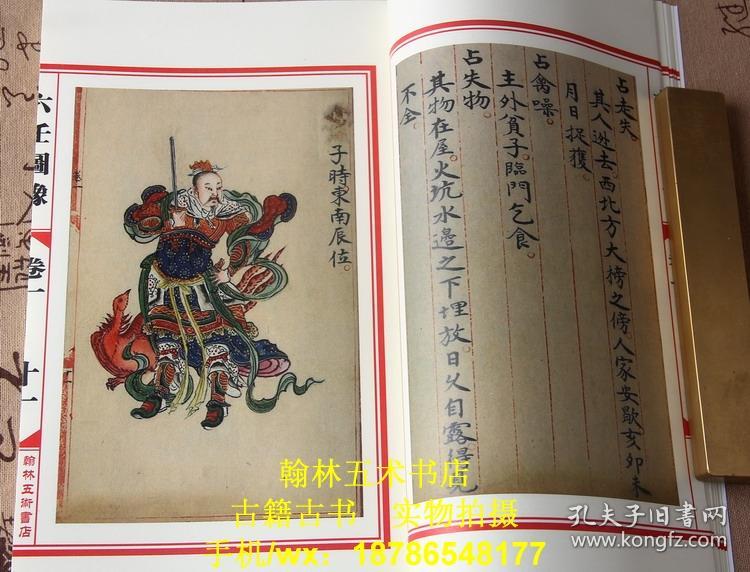 占走失。
其人逃去西北方大榜之傍人家安歇亥卯未
月日捉獲。
占禽噪。
主外貧子臨門乞食
占失物。
其物在屋火坑水邊之下埋放。日久自露
不全
子時東南辰位。
六壬圖像
卷一
十一
翰林五術書店
翰林五术书店
古籍古书 实物拍摄
手机/wx：18786548177
孔夫子旧书网
www.kongfz.com